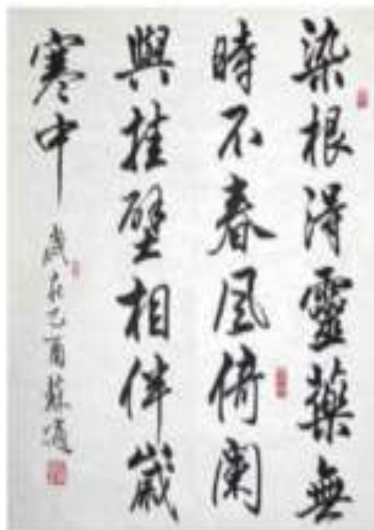 染根得靈藥無
時不春風倚闌
與挂壁相伴歲
寒中
歲在乙酉蘇